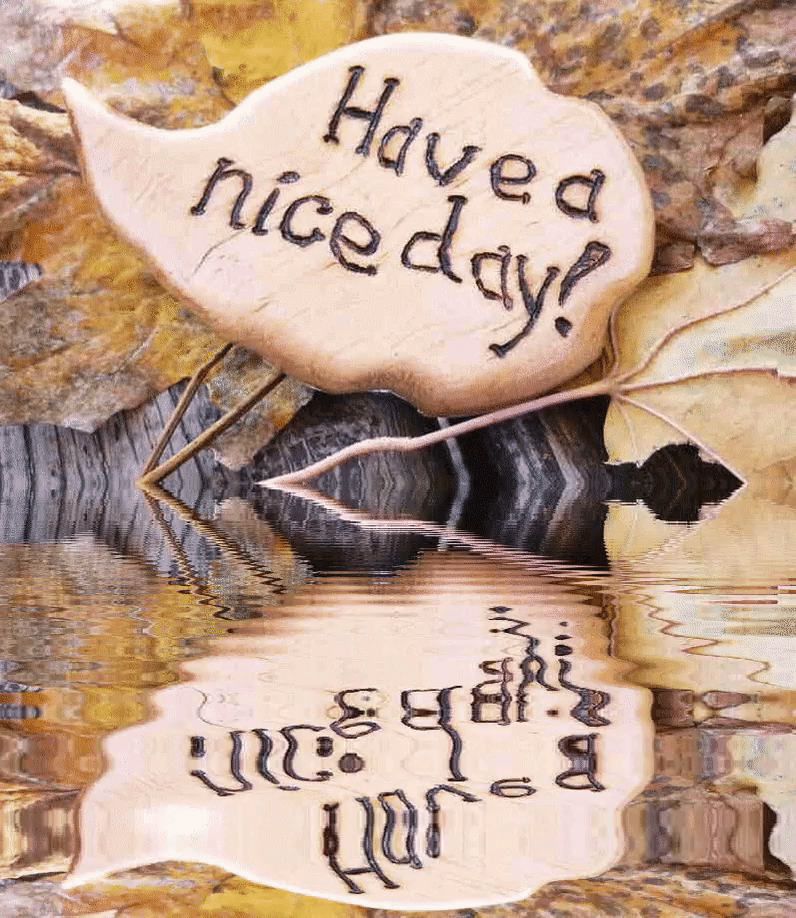 Have a
nice day!